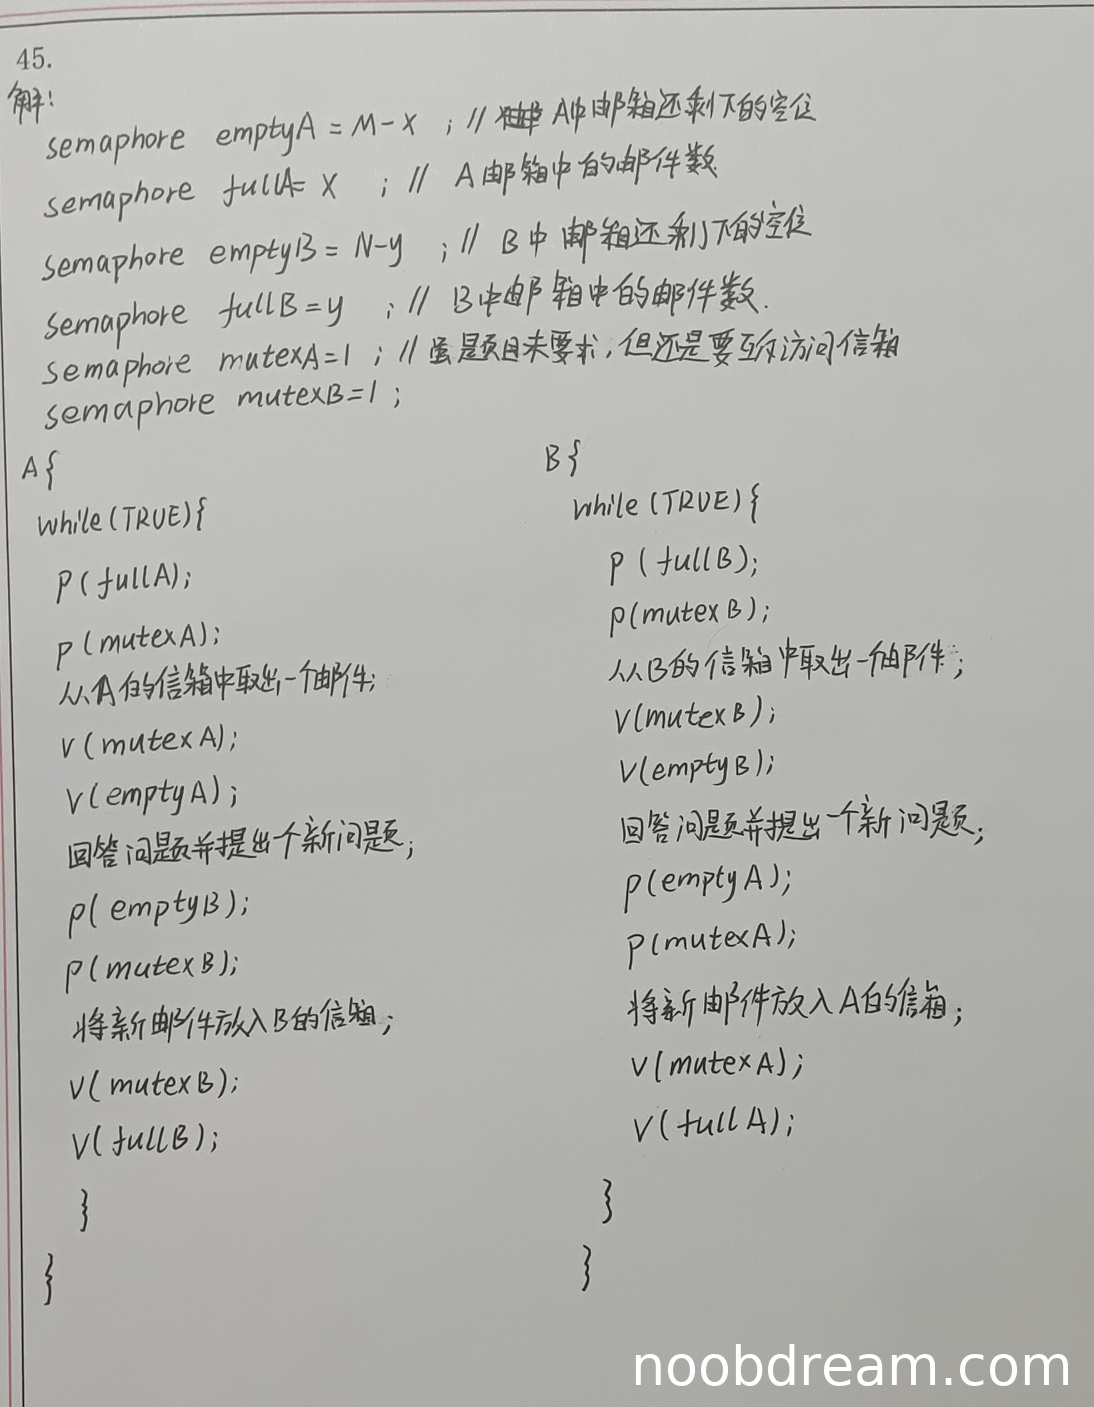 45.
解:
semaphore emptyA = M-x ; // A中邮箱还剩下的空位
semaphore fullA= x ; // A邮箱中的邮件数
semaphore emptyB = N-y ; // B中邮箱还剩下的空位
semaphore fullB = y ; // B中邮箱中的邮件数.
semaphore mutexA=1 ; // 虽题目未要求,但还是要互斥访问信箱
semaphore mutexB=1 ;
A{
while(TRUE){
P(fullA);
P(mutexA);
从A的信箱中取出一个邮件;
V(mutexA);
V(emptyA);
回答问题并提出一个新问题;
P(emptyB);
P(mutexB);
将新邮件放入B的信箱;
V(mutexB);
V(fullB);
}
}
B{
while(TRUE){
P(fullB);
P(mutexB);
从B的信箱中取出一个邮件;
V(mutexB);
V(emptyB);
回答问题并提出一个新问题;
P(emptyA);
P(mutexA);
将新邮件放入A的信箱;
V(mutexA);
V(fullA);
}
}
noobdream.com